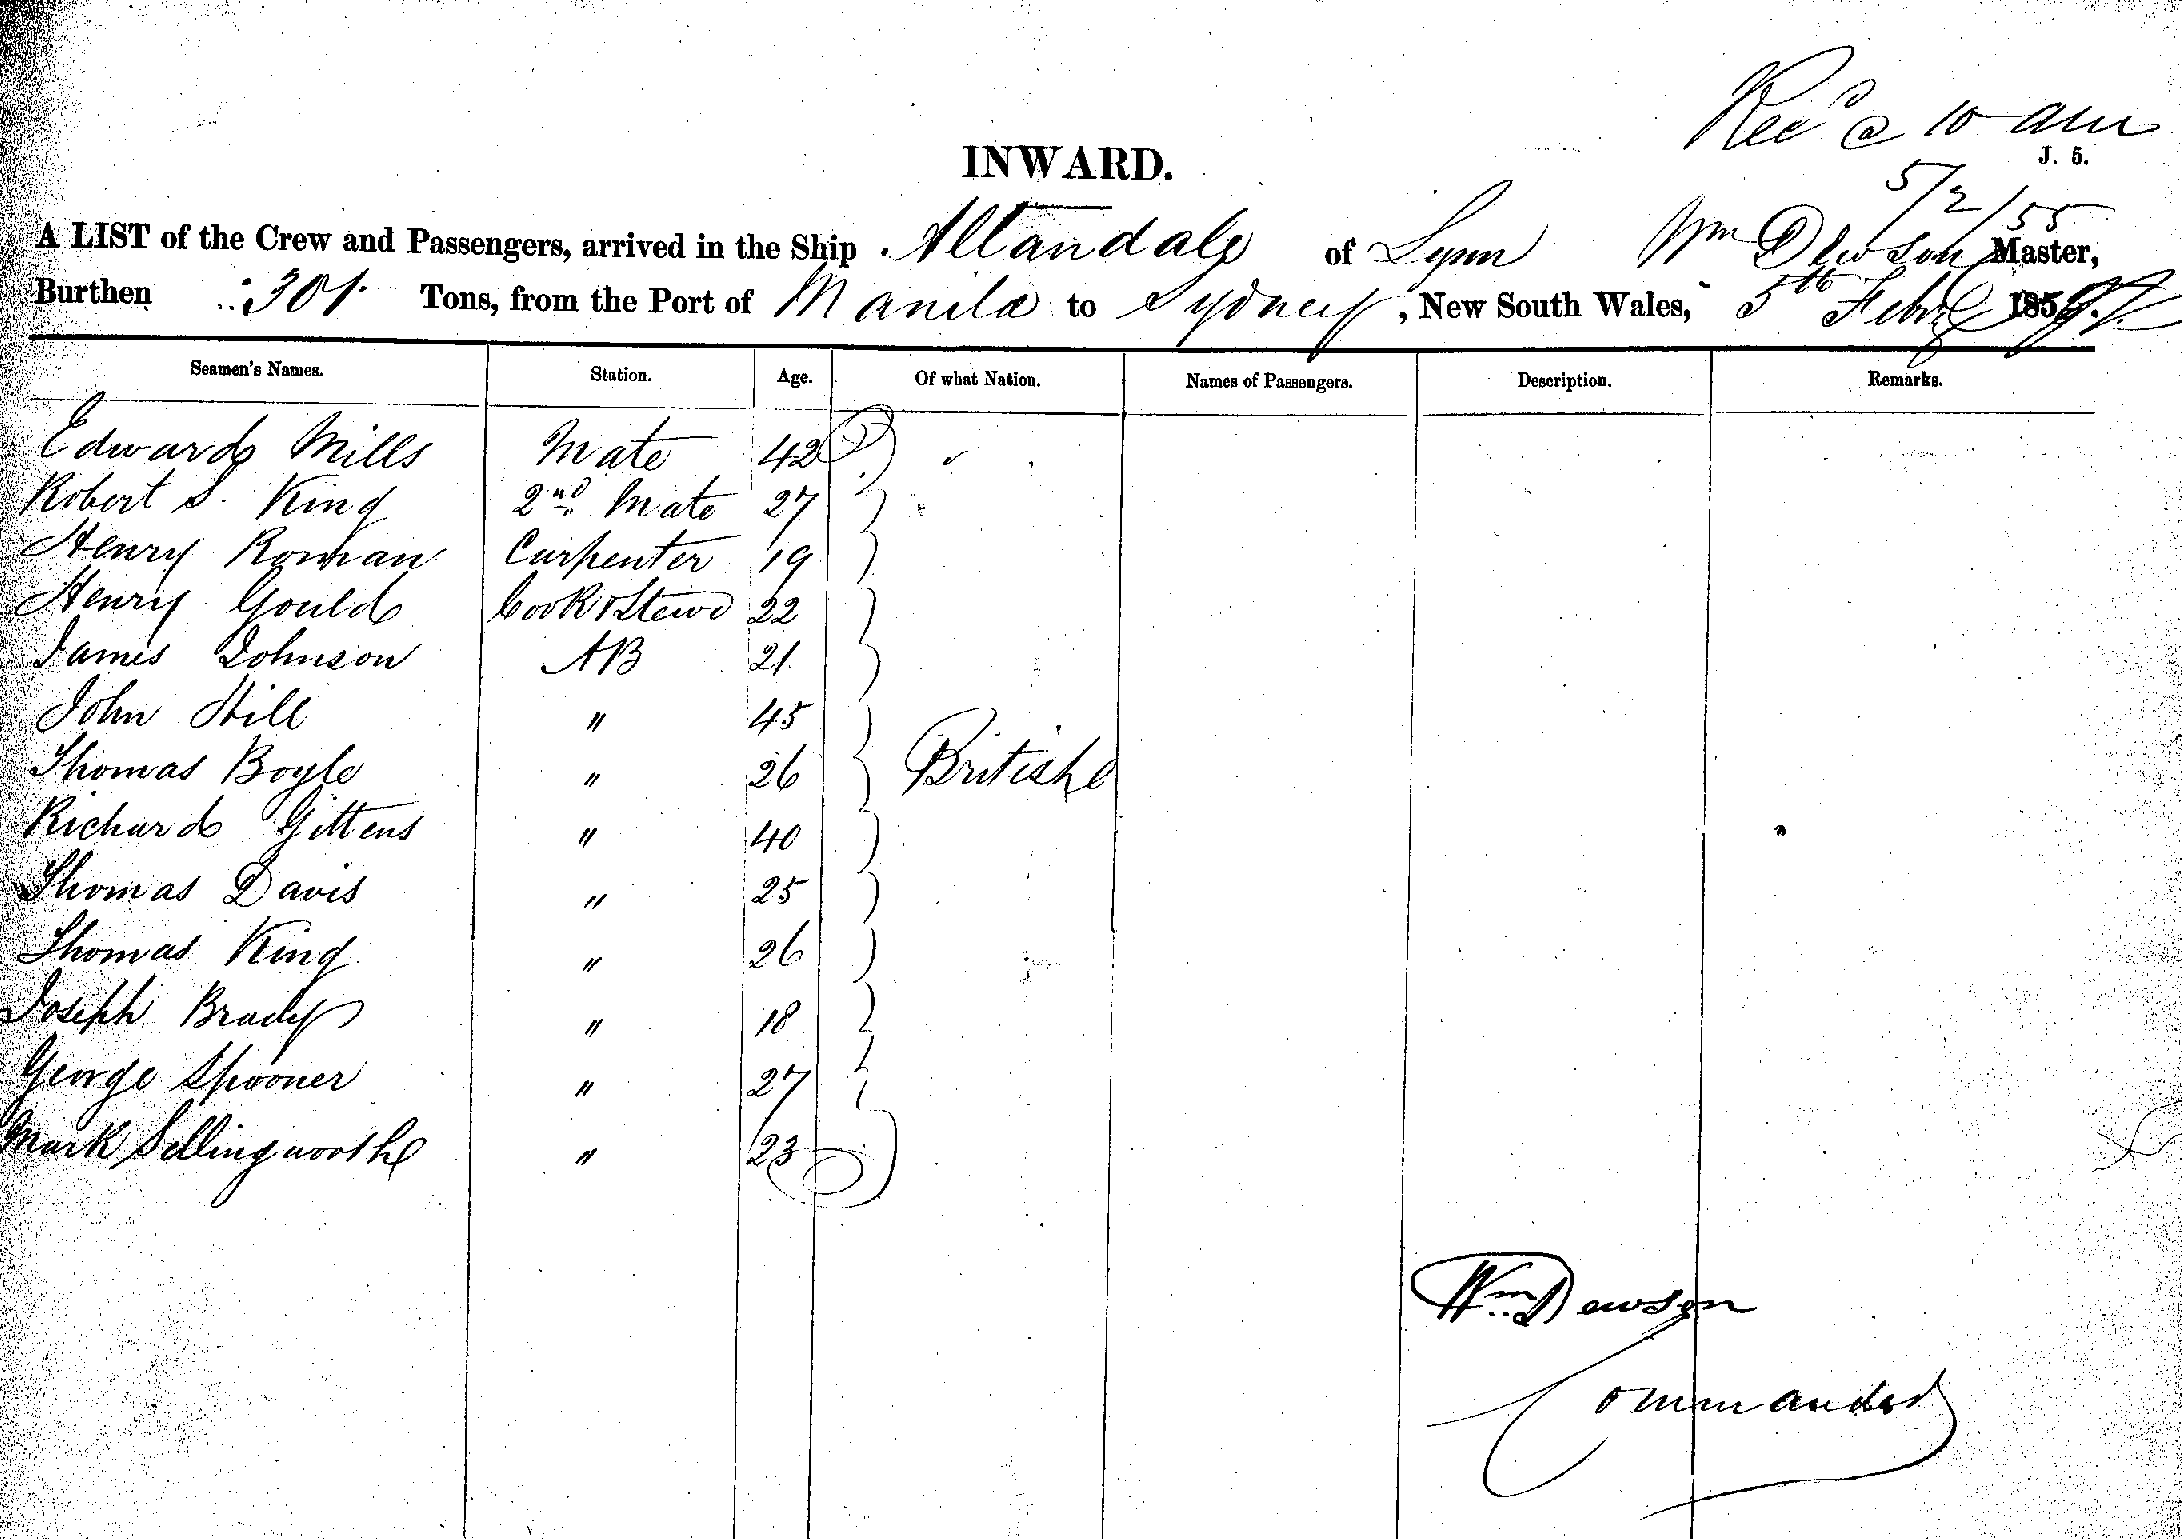 Rec'd @ 10 am
J. 5.
5/2/55
INWARD.
A LIST of the Crew and Passengers, arrived in the Ship Allandale of Lynn Wm Dewson Master,
Burthen 301 Tons, from the Port of Manila to Sydney, New South Wales, 5th Feby 185
Seamen's Names. Station. Age. Of what Nation. Names of Passengers. Description. Remarks.
Edward Mills Mate 42
Robert S. King 2nd Mate 27
Henry Roman Carpenter 19
Henry Gould Cook & Stewd 22
James Johnson AB 21
John Hill " 45
Thomas Boyle " 26 British
Richard Gittens " 40
Thomas Davis " 25
Thomas King " 26
Joseph Brady " 18
George Spooner " 27
Mark Sellingworth " 23
Wm Dewson
Commander